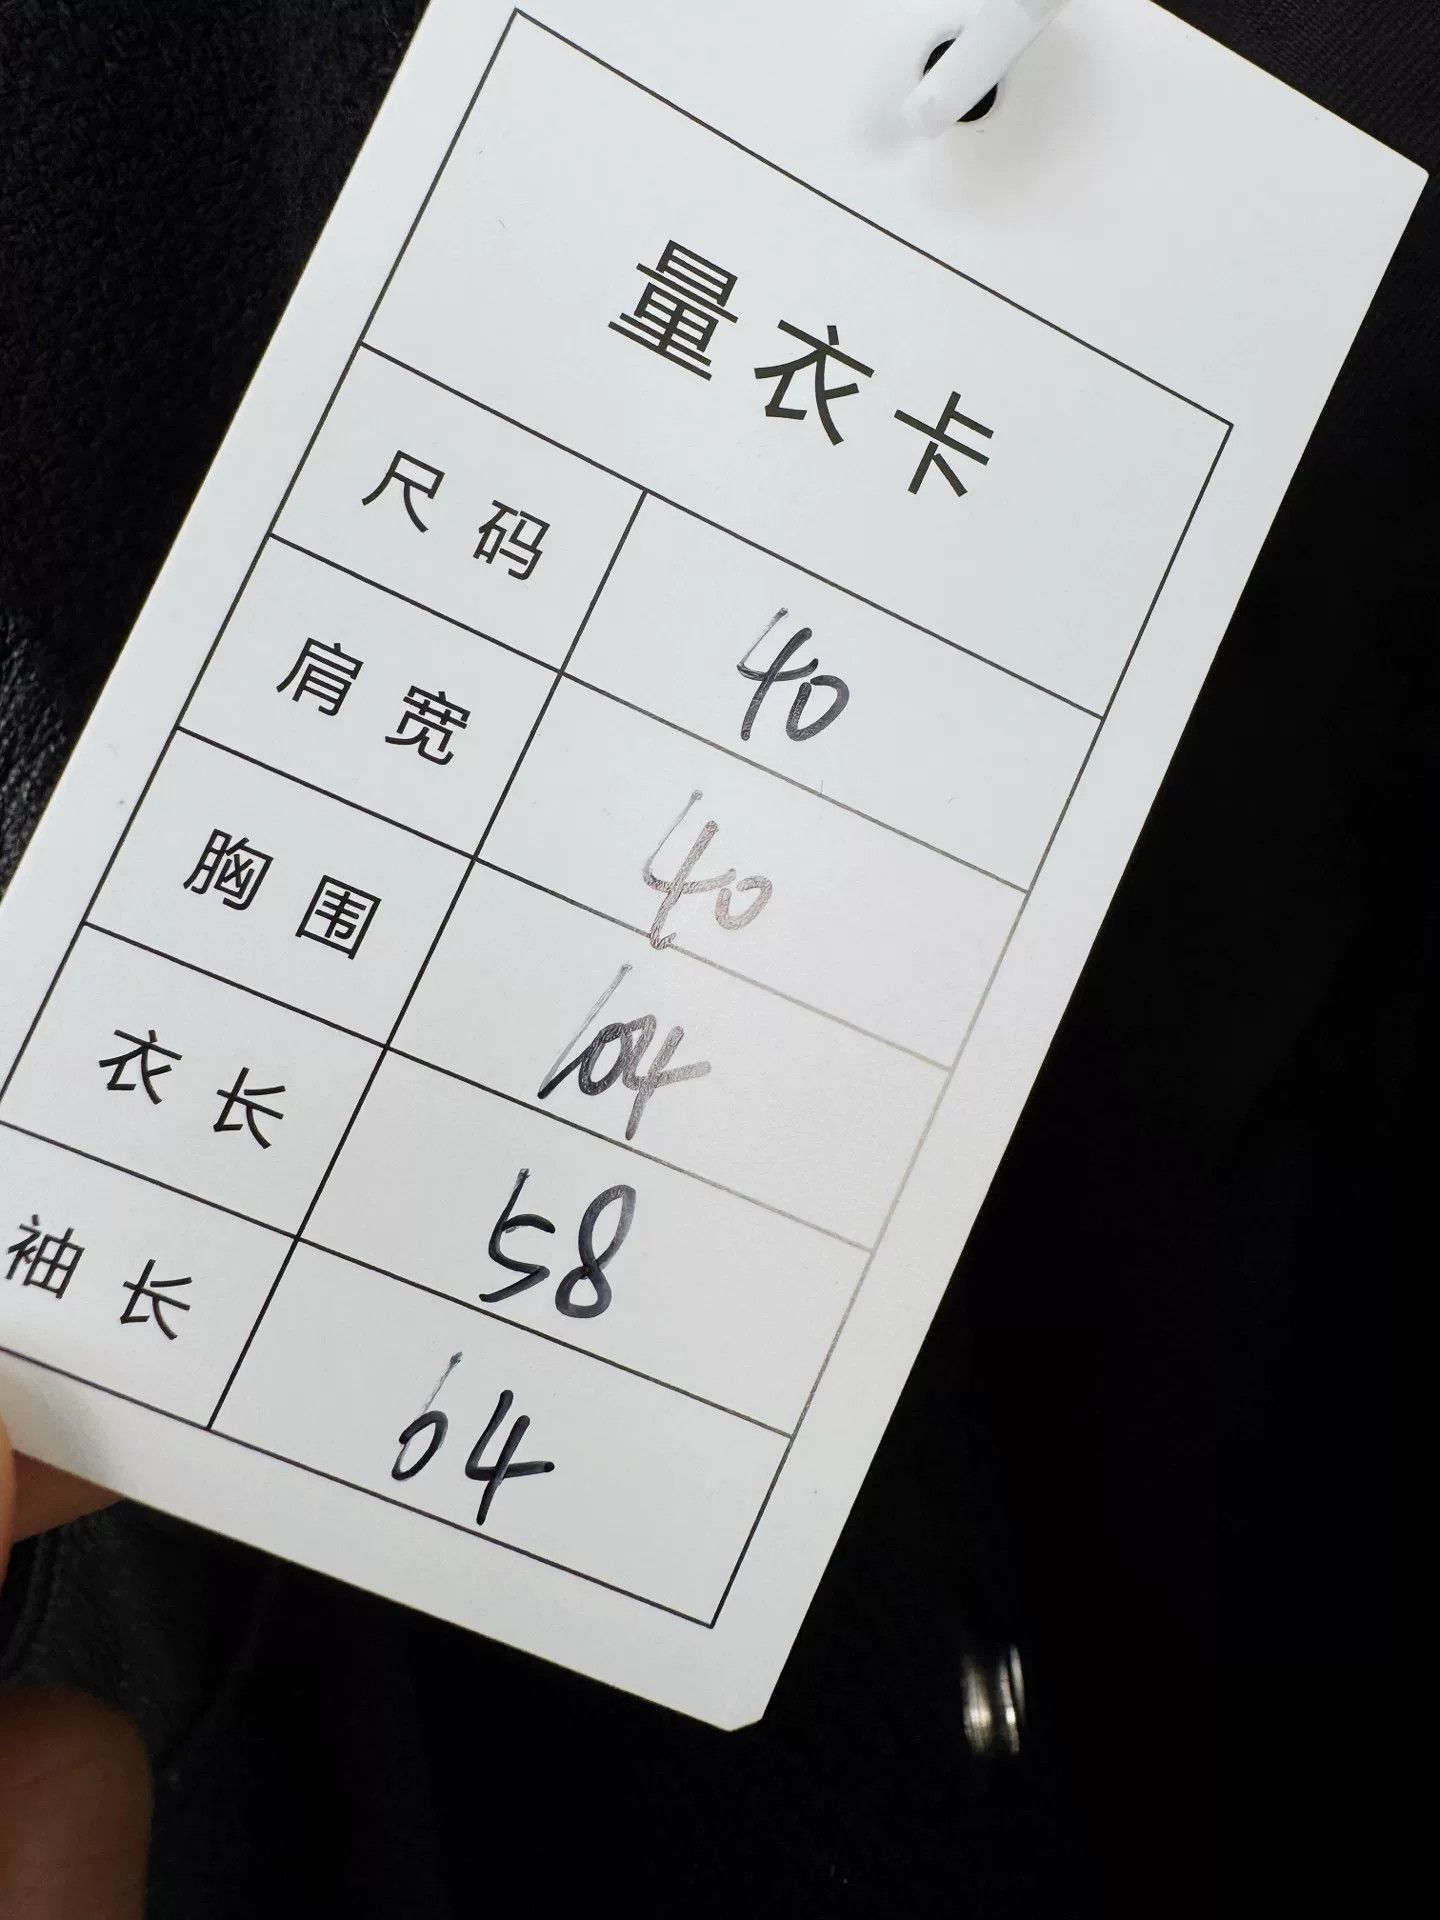 量衣卡
尺码 40
肩宽 40
胸围 104
衣长 58
袖长 64